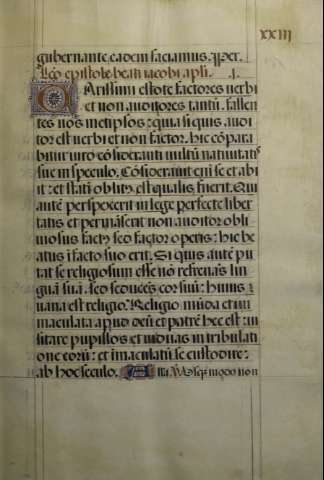 xxiii
gubernante eadem faciamus. Per.
Leco epistole beati iacobi apli. .I.
Carissimi estote factores verbi
et non auditores tantũ. fallen
tes vos metipsos: quia si quis audi
tor est verbi et non factor. hic cõpara
bitur viro cõsideranti vultũ natiuitatis
sue in speculo. Cõsiderauit eni se et abi
it: et stati oblitꝰ est qualis fuerit. Qui
autẽ perspexerit in lege perfecte liber
tatis et permãserit non auditor obli
uiosus factꝰ sed factor operis: hic be
atus ĩ facto suo erit. Si quis autẽ pu
tat se religiosum esse nõ refrenãs lin
guã suã. sed seducẽs cor suũ: huius
uana est religio. Religio mũda et im
maculata apud deũ et patrẽ hec est: ui
sitare pupillos et uiduas in tribulati
one eorũ: et imaculatũ se custodire:
ab hoc seculo. Alla. usq modo non